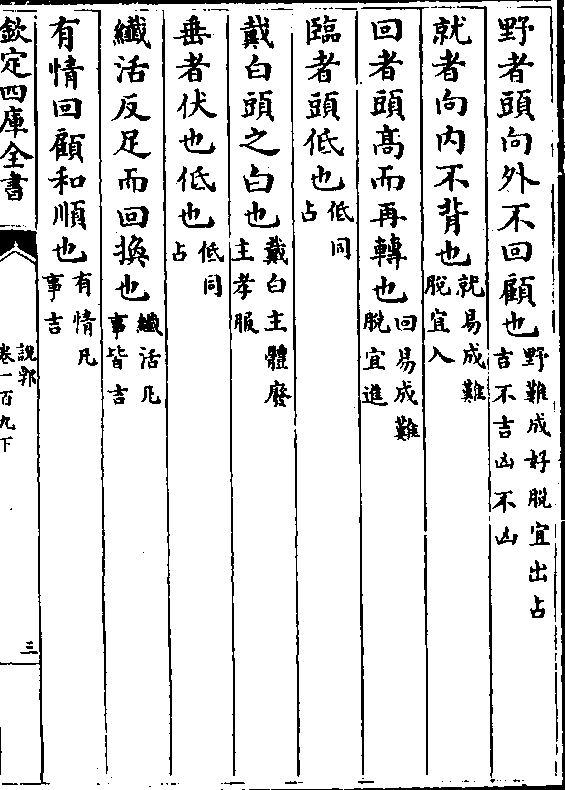 野者頭向外不回顧也野難成好脫宜出占吉不吉凶不凶
就者向內不背也就易成難脫宜入
回者頭高而再轉也回易成難脫宜進
臨者頭低也低同占
戴白頭之白也戴白主體廢主孝服
垂者伏也低也低同占
纖活反足而回換也纖活凡事皆吉
有情回顧和順也有情凡事吉
欽定四庫全書
說郛
卷一百九下
三